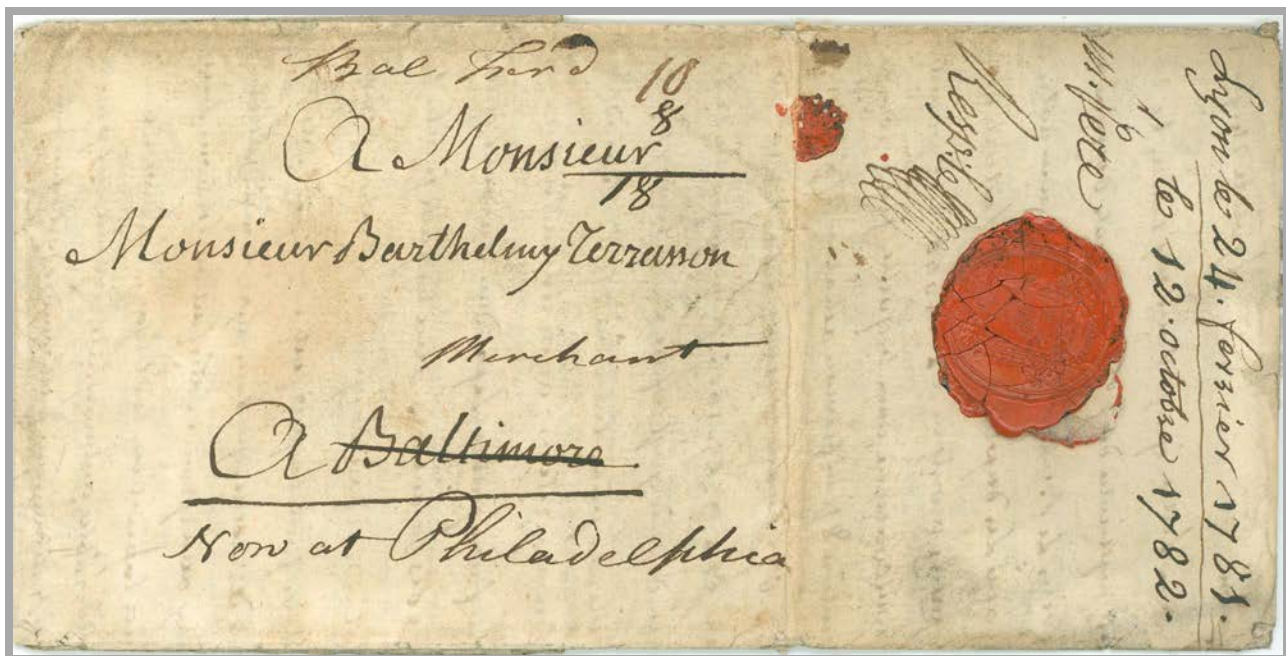 Bal Fwrd
10
8
A Monsieur
18
Monsieur Barthelmy Terrasson
Merchant
A Baltimore
Now at Philadelphia
Lyon le 24. fevrier 1781.
le 12. octobre 1782.